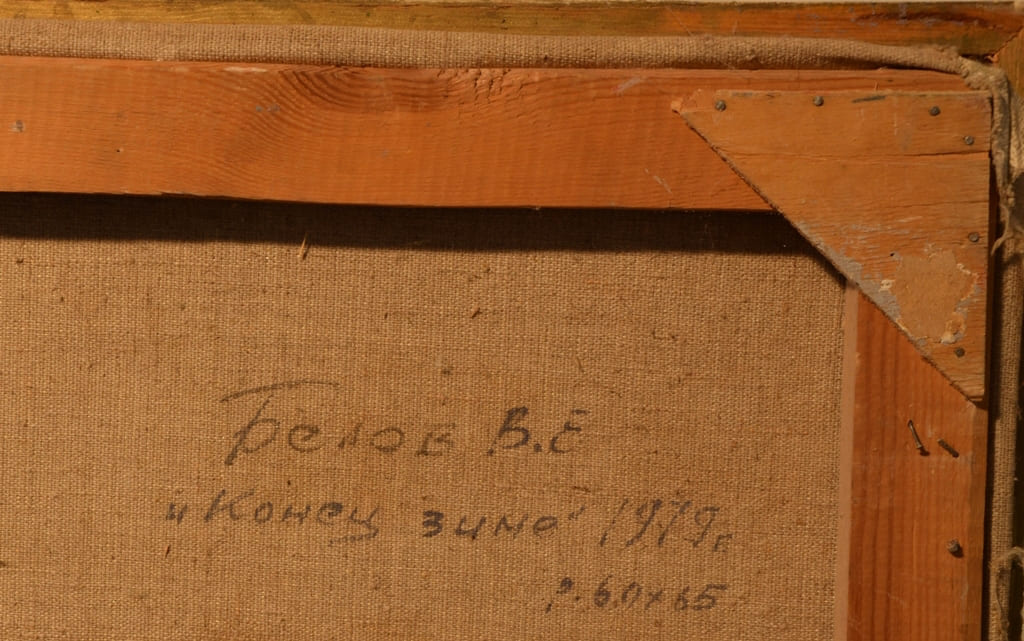 Белов В.Е
"Конец зимо" 1979г
р. 60х65